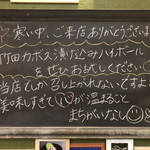 寒い中、ご来店ありがとうございます
竹田カボス漬込みハイボール
をぜひお試しください
当店でしか召し上がれないですよ
美味しすぎて心が温まること
まちがいなし